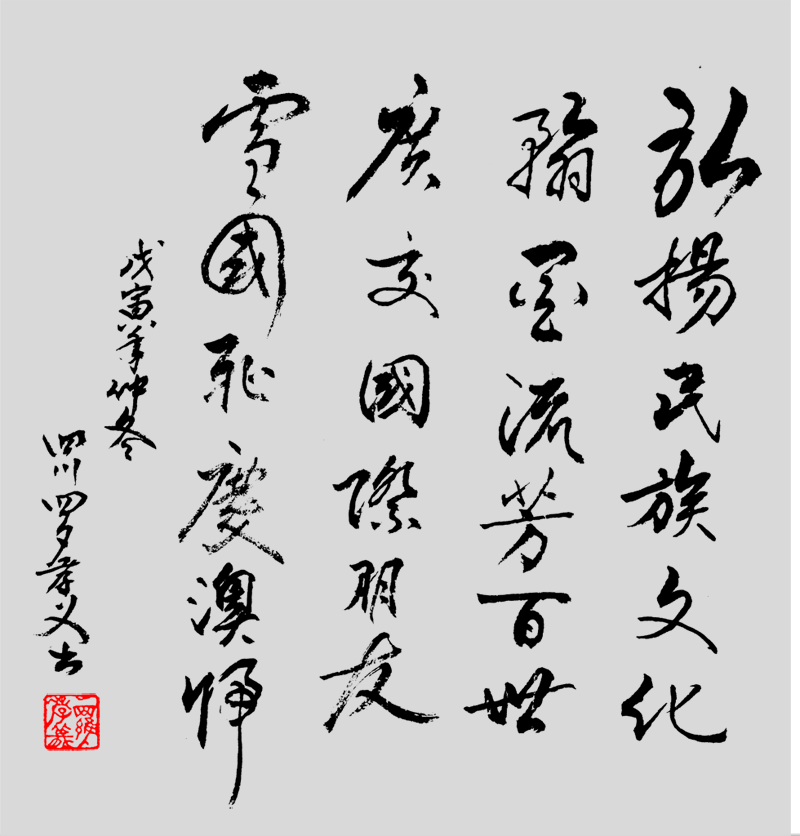 弘揚民族文化
翰墨流芳百世
廣交國際朋友
雪國耻慶澳歸
戊寅年仲冬
四川罗孝义书
羅孝義